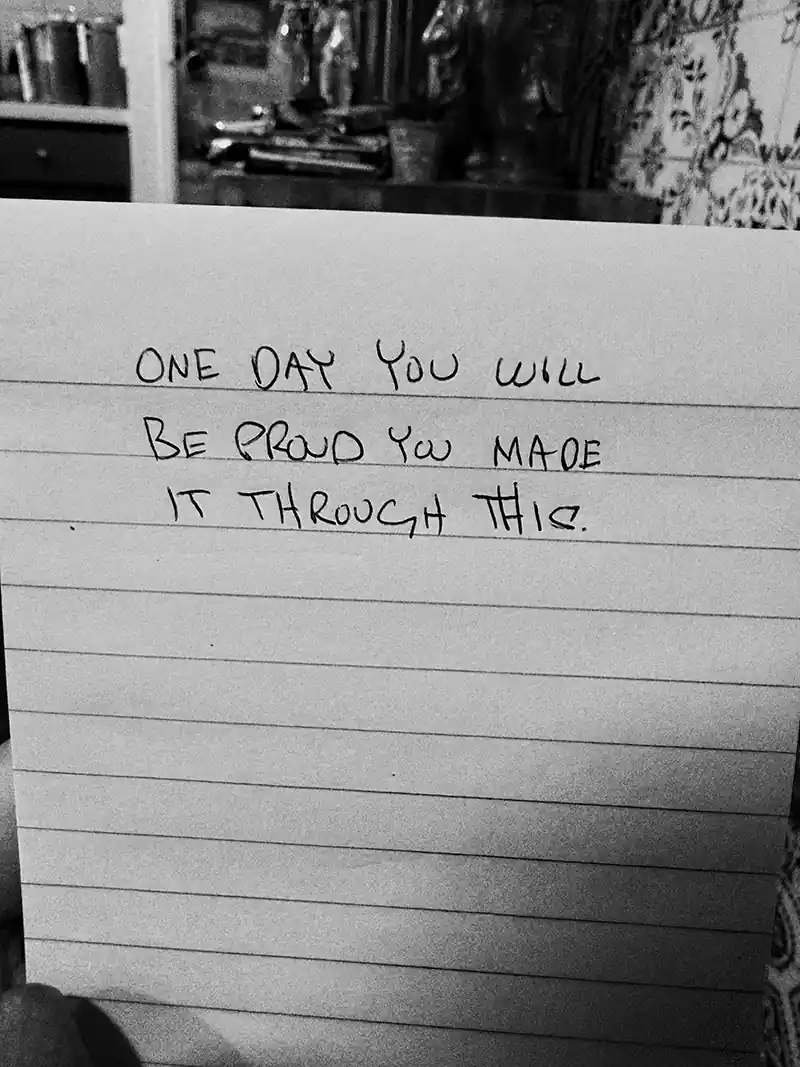 ONE DAY YOU WILL
BE PROUD YOU MADE
IT THROUGH THIS.